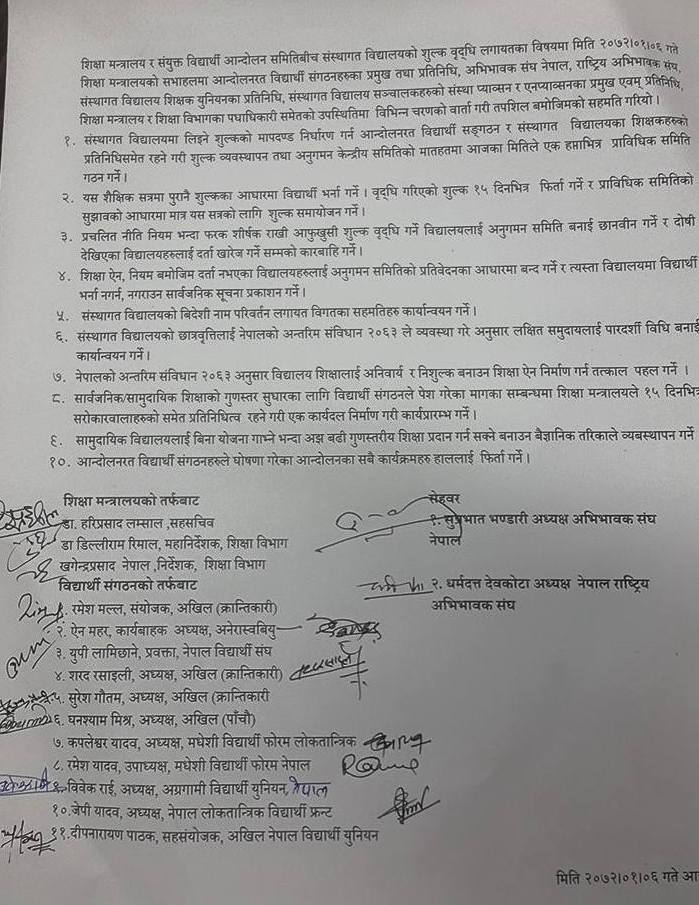 शिक्षा मन्त्रालय र संयुक्त विद्यार्थी आन्दोलन समितिबीच संस्थागत विद्यालयको शुल्क वृद्धि लगायतका विषयमा मिति २०७२।०१।०६ गते
शिक्षा मन्त्रालयको सभाहलमा आन्दोलनरत विद्यार्थी संगठनहरुका प्रमुख तथा प्रतिनिधि, अभिभावक संघ नेपाल, राष्ट्रिय अभिभावक संघ,
संस्थागत विद्यालय शिक्षक युनियनका प्रतिनिधि, संस्थागत विद्यालय सञ्चालकहरुको संस्था प्याव्सन र एनप्याव्सनका प्रमुख एवम् प्रतिनिधि,
शिक्षा मन्त्रालय र शिक्षा विभागका पधाधिकारी समेतको उपस्थितिमा विभिन्न चरणको वार्ता गरी तपशिल बमोजिमको सहमति गरियो।
१. संस्थागत विद्यालयमा लिइने शुल्कको मापदण्ड निर्धारण गर्न आन्दोलनरत विद्यार्थी सङ्गठन र संस्थागत विद्यालयका शिक्षकहरुको
प्रतिनिधिसमेत रहने गरी शुल्क व्यवस्थापन तथा अनुगमन केन्द्रीय समितिको मातहतमा आजका मितिले एक हप्ताभित्र प्राविधिक समिति
गठन गर्ने।
२. यस शैक्षिक सत्रमा पुरानै शुल्कका आधारमा विद्यार्थी भर्ना गर्ने। वृद्धि गरिएको शुल्क १५ दिनभित्र फिर्ता गर्ने र प्राविधिक समितिको
सुझावको आधारमा मात्र यस सत्रको लागि शुल्क समायोजन गर्ने।
३. प्रचलित नीति नियम भन्दा फरक शीर्षक राखी आफुखुसी शुल्क वृद्धि गर्ने विद्यालयलाई अनुगमन समिति बनाई छानवीन गर्ने र दोषी
देखिएका विद्यालयहरुलाई दर्ता खारेज गर्ने सम्मको कारबाहि गर्ने।
४. शिक्षा ऐन, नियम बमोजिम दर्ता नभएका विद्यालयहरुलाई अनुगमन समितिको प्रतिवेदनका आधारमा बन्द गर्ने र त्यस्ता विद्यालयमा विद्यार्थी
भर्ना नगर्न, नगराउन सार्वजनिक सूचना प्रकाशन गर्ने।
५. संस्थागत विद्यालयको बिदेशी नाम परिवर्तन लगायत विगतका सहमतिहरु कार्यान्वयन गर्ने।
६. संस्थागत विद्यालयको छात्रवृत्तिलाई नेपालको अन्तरिम संविधान २०६३ ले व्यवस्था गरे अनुसार लक्षित समुदायलाई पारदर्शी विधि बनाई
कार्यान्वयन गर्ने।
७. नेपालको अन्तरिम संविधान २०६३ अनुसार विद्यालय शिक्षालाई अनिवार्य र निशुल्क बनाउन शिक्षा ऐन निर्माण गर्न तत्काल पहल गर्ने ।
८. सार्वजनिक/सामुदायिक शिक्षाको गुणस्तर सुधारका लागि विद्यार्थी संगठनले पेश गरेका मागका सम्बन्धमा शिक्षा मन्त्रालयले १५ दिनभित्र
सरोकारवालाहरुको समेत प्रतिनिधित्व रहने गरी एक कार्यदल निर्माण गरी कार्यप्रारम्भ गर्ने।
९. सामुदायिक विद्यालयलाई बिना योजना गाभ्ने भन्दा अझ बढी गुणस्तरीय शिक्षा प्रदान गर्न सक्ने बनाउन बैज्ञानिक तरिकाले व्यबस्थापन गर्ने
१०. आन्दोलनरत विद्यार्थी संगठनहरुले घोषणा गरेका आन्दोलनका सबै कार्यक्रमहरु हाललाई फिर्ता गर्ने।
शिक्षा मन्त्रालयको तर्फबाट
डा. हरिप्रसाद लम्साल ,सहसचिव
डा डिल्लीराम रिमाल, महानिर्देशक, शिक्षा विभाग
खगेन्द्रप्रसाद नेपाल ,निर्देशक, शिक्षा विभाग
विद्यार्थी संगठनको तर्फबाट
१. रमेश मल्ल, संयोजक, अखिल (क्रान्तिकारी)
२. ऐन महर, कार्यबाहक अध्यक्ष, अनेरास्वबियु
३. युपी लामिछाने, प्रवक्ता, नेपाल विद्यार्थी संघ
४. शरद रसाइली, अध्यक्ष, अखिल (क्रान्तिकारी)
५. सुरेश गौतम, अध्यक्ष, अखिल (क्रान्तिकारी
६. घनश्याम मिश्र, अध्यक्ष, अखिल (पाँचौ)
७. कपलेश्वर यादव, अध्यक्ष, मधेशी विद्यार्थी फोरम लोकतान्त्रिक
८. रमेश यादव, उपाध्यक्ष, मधेशी विद्यार्थी फोरम नेपाल
९. विवेक राई, अध्यक्ष, अग्रगामी विद्यार्थी युनियन, नेपाल
१०.जेपी यादव, अध्यक्ष, नेपाल लोकतान्त्रिक विद्यार्थी फ्रन्ट
११.दीपनारायण पाठक, सहसंयोजक, अखिल नेपाल विद्यार्थी युनियन
सेहवर
१. सुप्रभात भण्डारी अध्यक्ष अभिभावक संघ
नेपाल
२. धर्मदत्त देवकोटा अध्यक्ष नेपाल राष्ट्रिय
अभिभावक संघ
मिति २०७२।०१।०६ गते आ